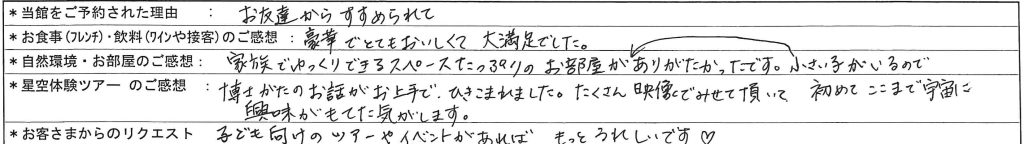 *当館をご予約された理由 : お友達からすすめられて
*お食事(フレンチ)・飲料(ワインや接客)のご感想 : 豪華でとてもおいしくて 大満足でした。
*自然環境・お部屋のご感想: 家族でゆっくりできるスペースたっぷりのお部屋がありがたかったです。小さい子がいるので
*星空体験ツアー のご感想 : 博士かたのお話がお上手で、ひきこまれました。たくさん映像でみせて頂いて 初めてここまで宇宙に
興味がもてた気がします。
*お客さまからのリクエスト 子ども向けのツアーやイベントがあれば もっとうれしいです♡